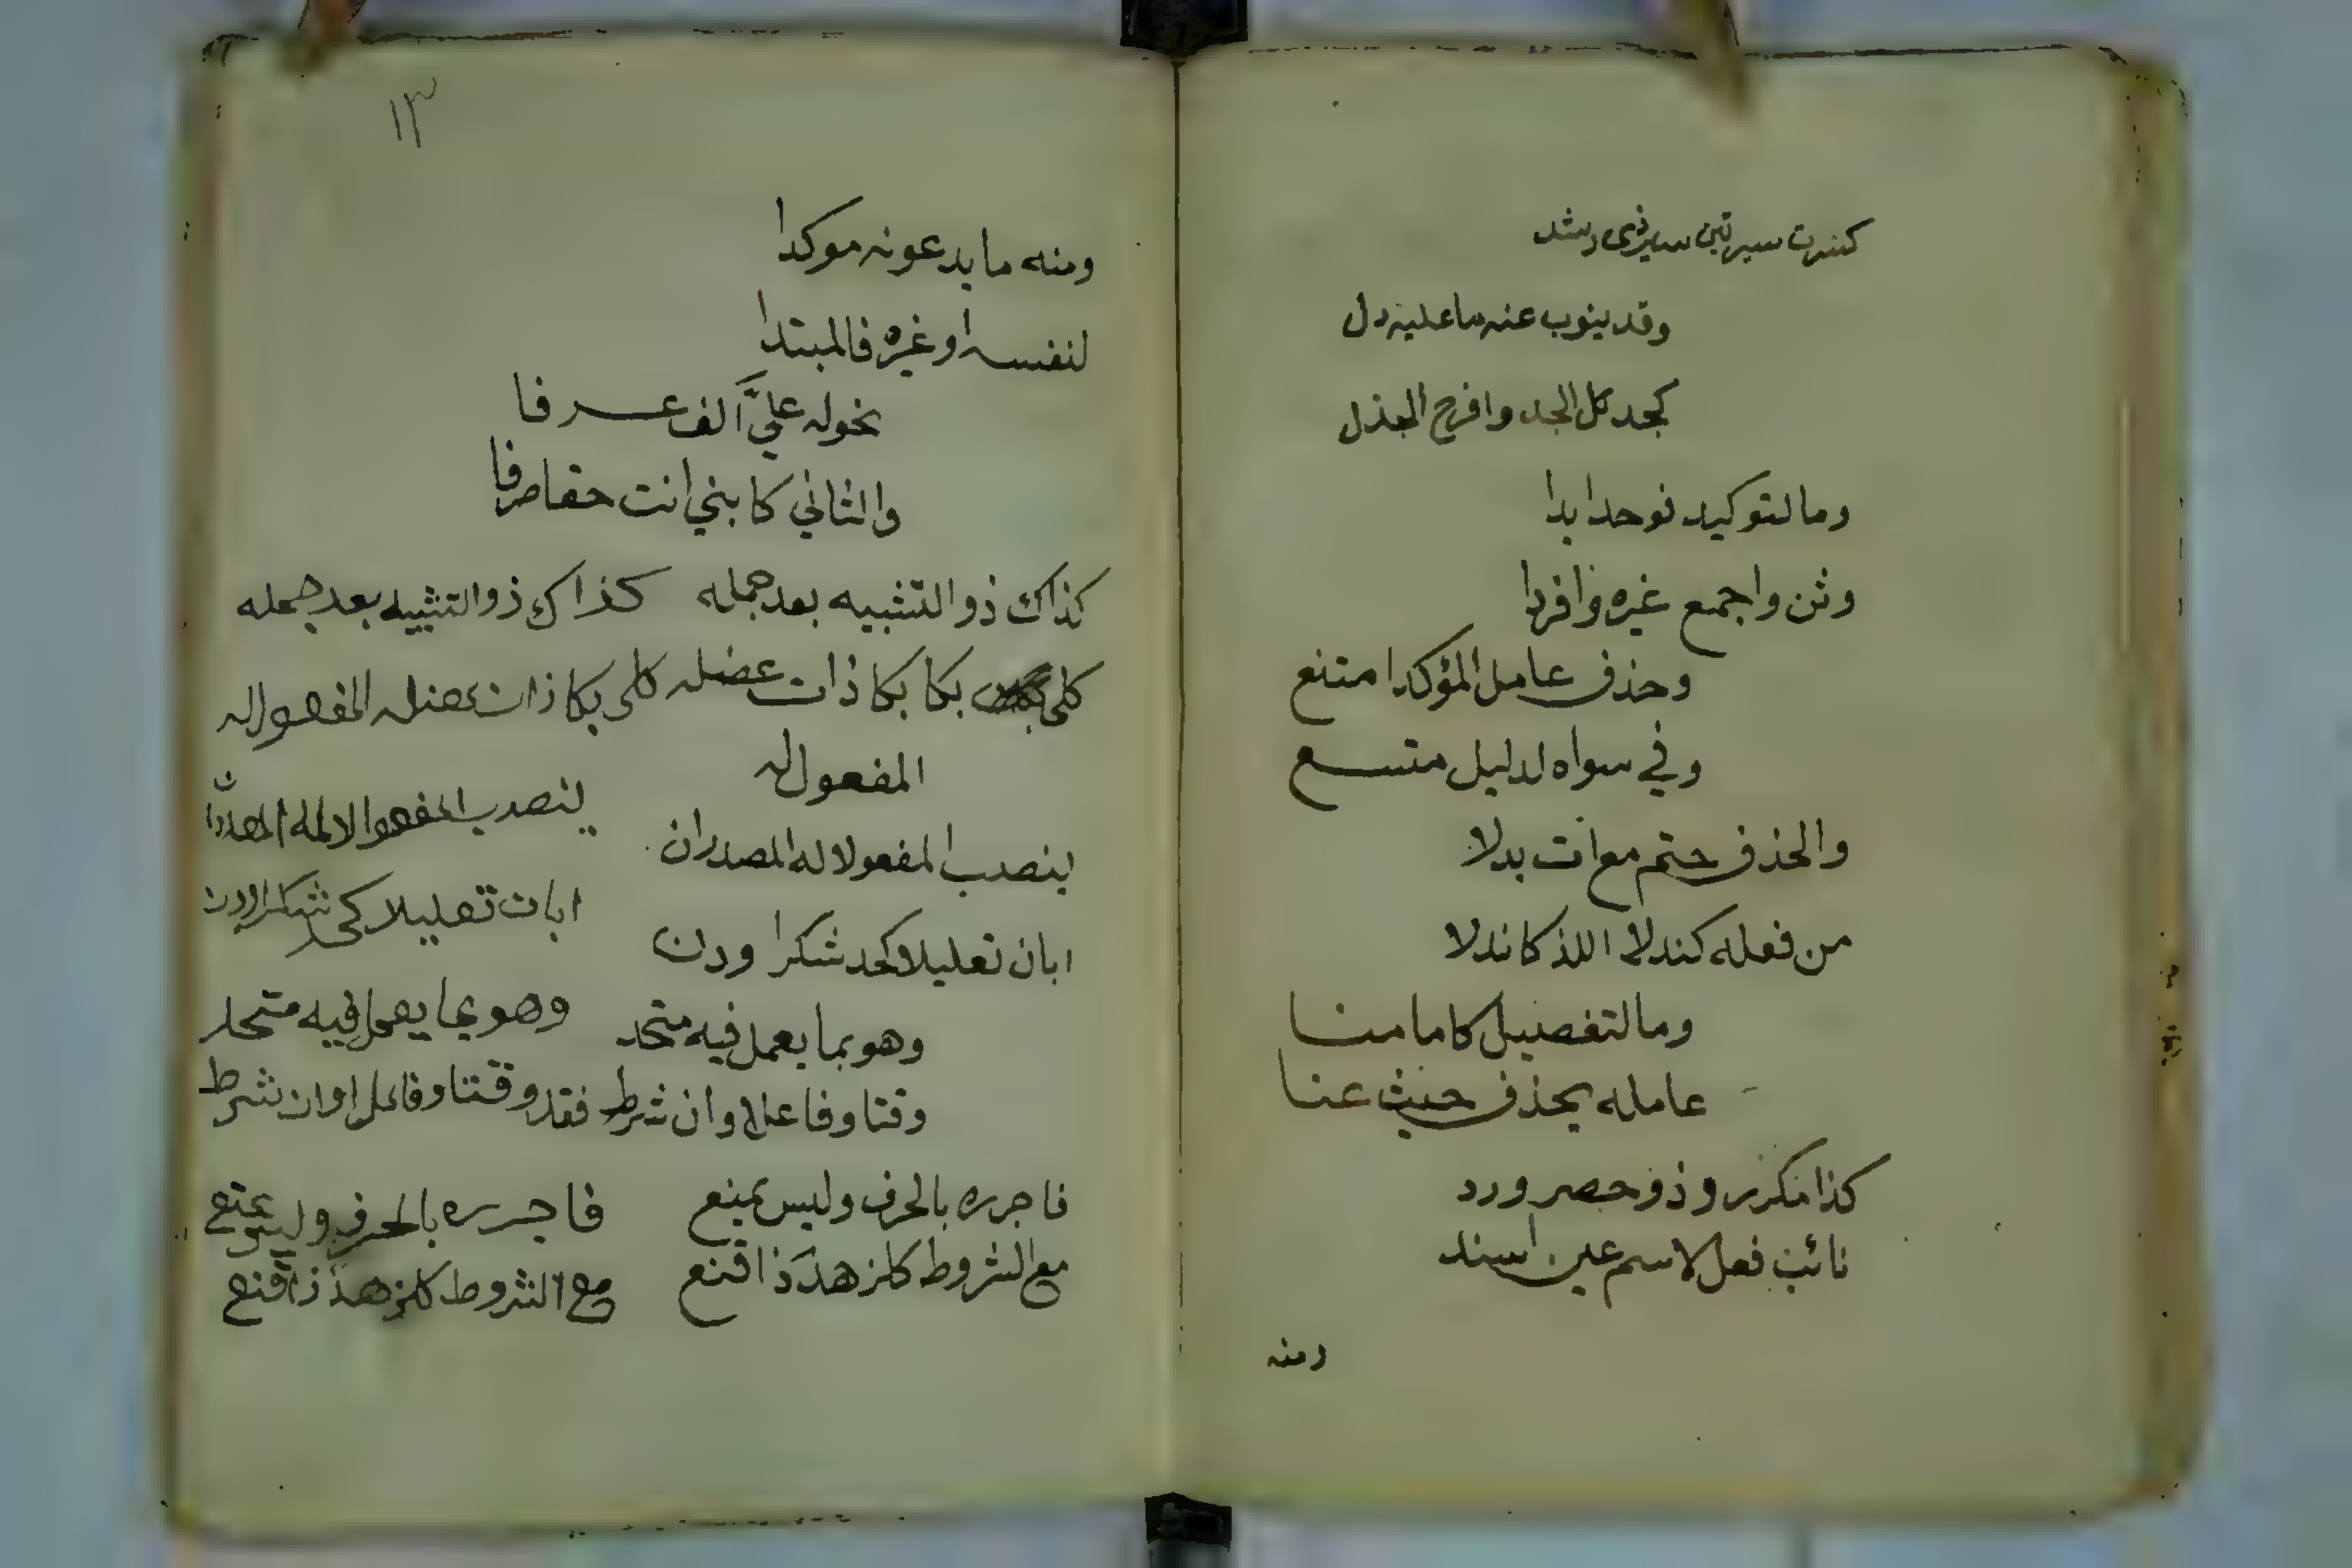 كسرت سيرتين سيرذي رشد
وقد ينوب عنه ما عليه دل
كجد كل الجد وافرح الجذل
وما لتوكيد فوحد ابدا
وثن واجمع غيره وافردا
وحذف عامل المؤكدا متنع
وفي سواه لدليل متسع
والحذف حتم مع ات بدلا
من فعله كندلا اللذ كاندلا
وما لتفصيل كاما منا
عامله يحذف حيث عنا
كذا مكرر وذو حصر ورد
نائب فعل لاسم عين اسند
ومنه
١٣
ومنه ما يدعونه موكدا
لنفسه او غيره فالمبتدا
نحوله عليّ الف عرفا
والثاني كابني انت حقا صرفا
كذاك ذو التشبيه بعد جمله كذاك ذو التشبيه بعد جمله
كلي بكا بكا ذات عضله كلي بكا ذات عضله المفعول له
المفعول له
ينصب المفعولا له المصدران
ينصب المفعولا له المصدران
ابان تعليلا كجد شكرا ودن
ابان تعليلا كجد شكرا ودن
وهو بما يعمل فيه متحد وهو بما يعمل فيه متحد
وقتا وفاعلا وان شرط فقد وقتا وفاعلا وان شرط
فاجرره بالحرف وليس يمنع فاجرره بالحرف وليس يمتع
مع الشروط كلزهد ذا قنع مع الشروط كلزهد ذا قنع